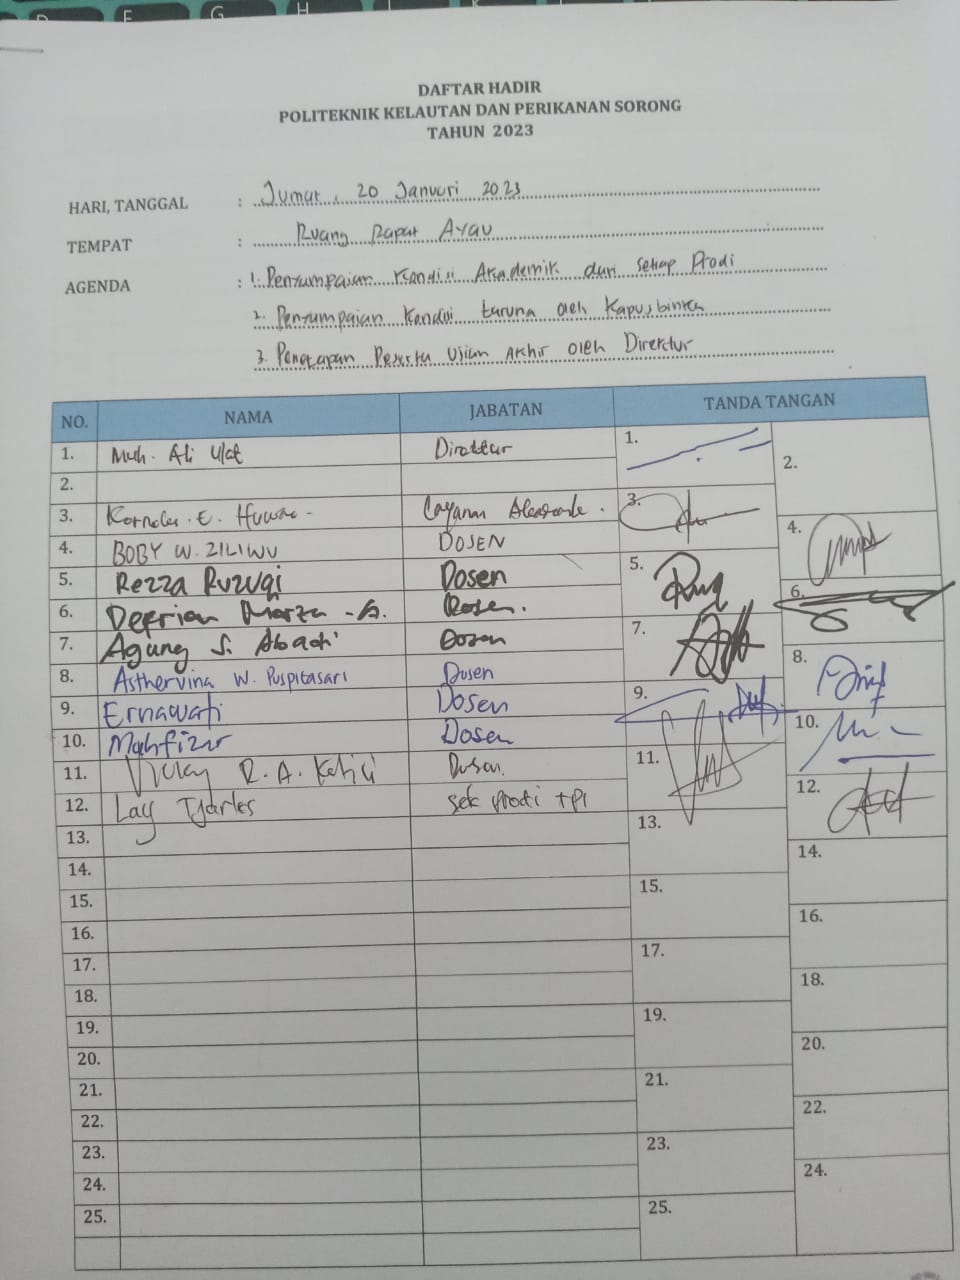 DAFTAR HADIR
POLITEKNIK KELAUTAN DAN PERIKANAN SORONG
TAHUN 2023
HARI, TANGGAL : Jumat, 20 Januari 2023
TEMPAT : Ruang Rapat Ayau
AGENDA : 1. Penyampaian Kondisi Akademik dari setiap Prodi
2. Penyampaian Kondisi taruna oleh Kapusbinka
3. Penetapan Peserta Ujian Akhir oleh Direktur
NO. NAMA JABATAN TANDA TANGAN
1. Muh. Ali Ulat Direktur 1.
2. 2.
3. Kornelis. E. 3.
4. BOBY W. ZILIWU DOSEN 4.
5. Rezza Ruzuqi Dosen 5.
6. Defrian Marza -A. Dosen. 6.
7. Agung S. Abadi Dosen 7.
8. Asthervina W. Puspitasari Dosen 8.
9. Ernawati Dosen 9.
10. Mahfizur Dosen 10.
11. R. A. Dosen. 11.
12. Lay Tjarles sek Prodi TPI 12.
13. 13.
14. 14.
15. 15.
16. 16.
17. 17.
18. 18.
19. 19.
20. 20.
21. 21.
22. 22.
23. 23.
24. 24.
25. 25.